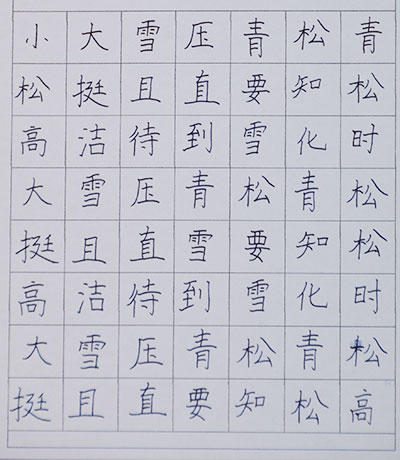 小大雪压青松青
松挺且直要知松
高洁待到雪化时
大雪压青松青松
挺且直雪要知松
高洁待到雪化时
大雪压青松青松
挺且直要知松高